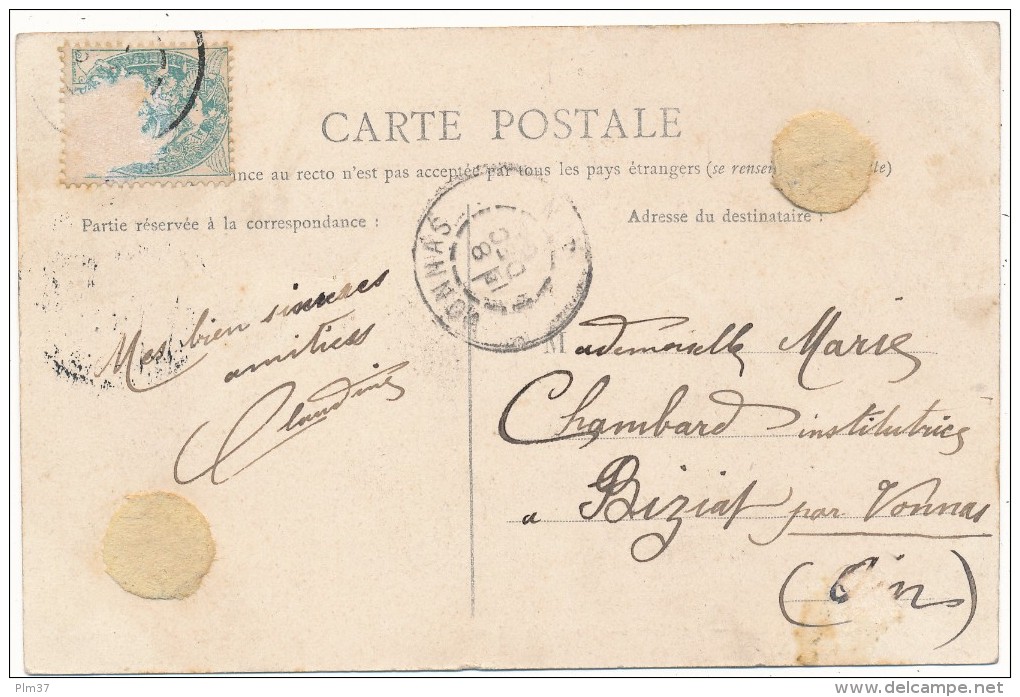 CARTE POSTALE
ance au recto n'est pas acceptée par tous les pays étrangers (se rensei le)
Partie réservée à la correspondance :
Adresse du destinataire :
VONNAS
Mes bien sincères
amitiés
Claudine
Mademoiselle Marie
Chambard institutrice
a Biziat par Vonnas
(Ain)
Plm37
delcampe.net